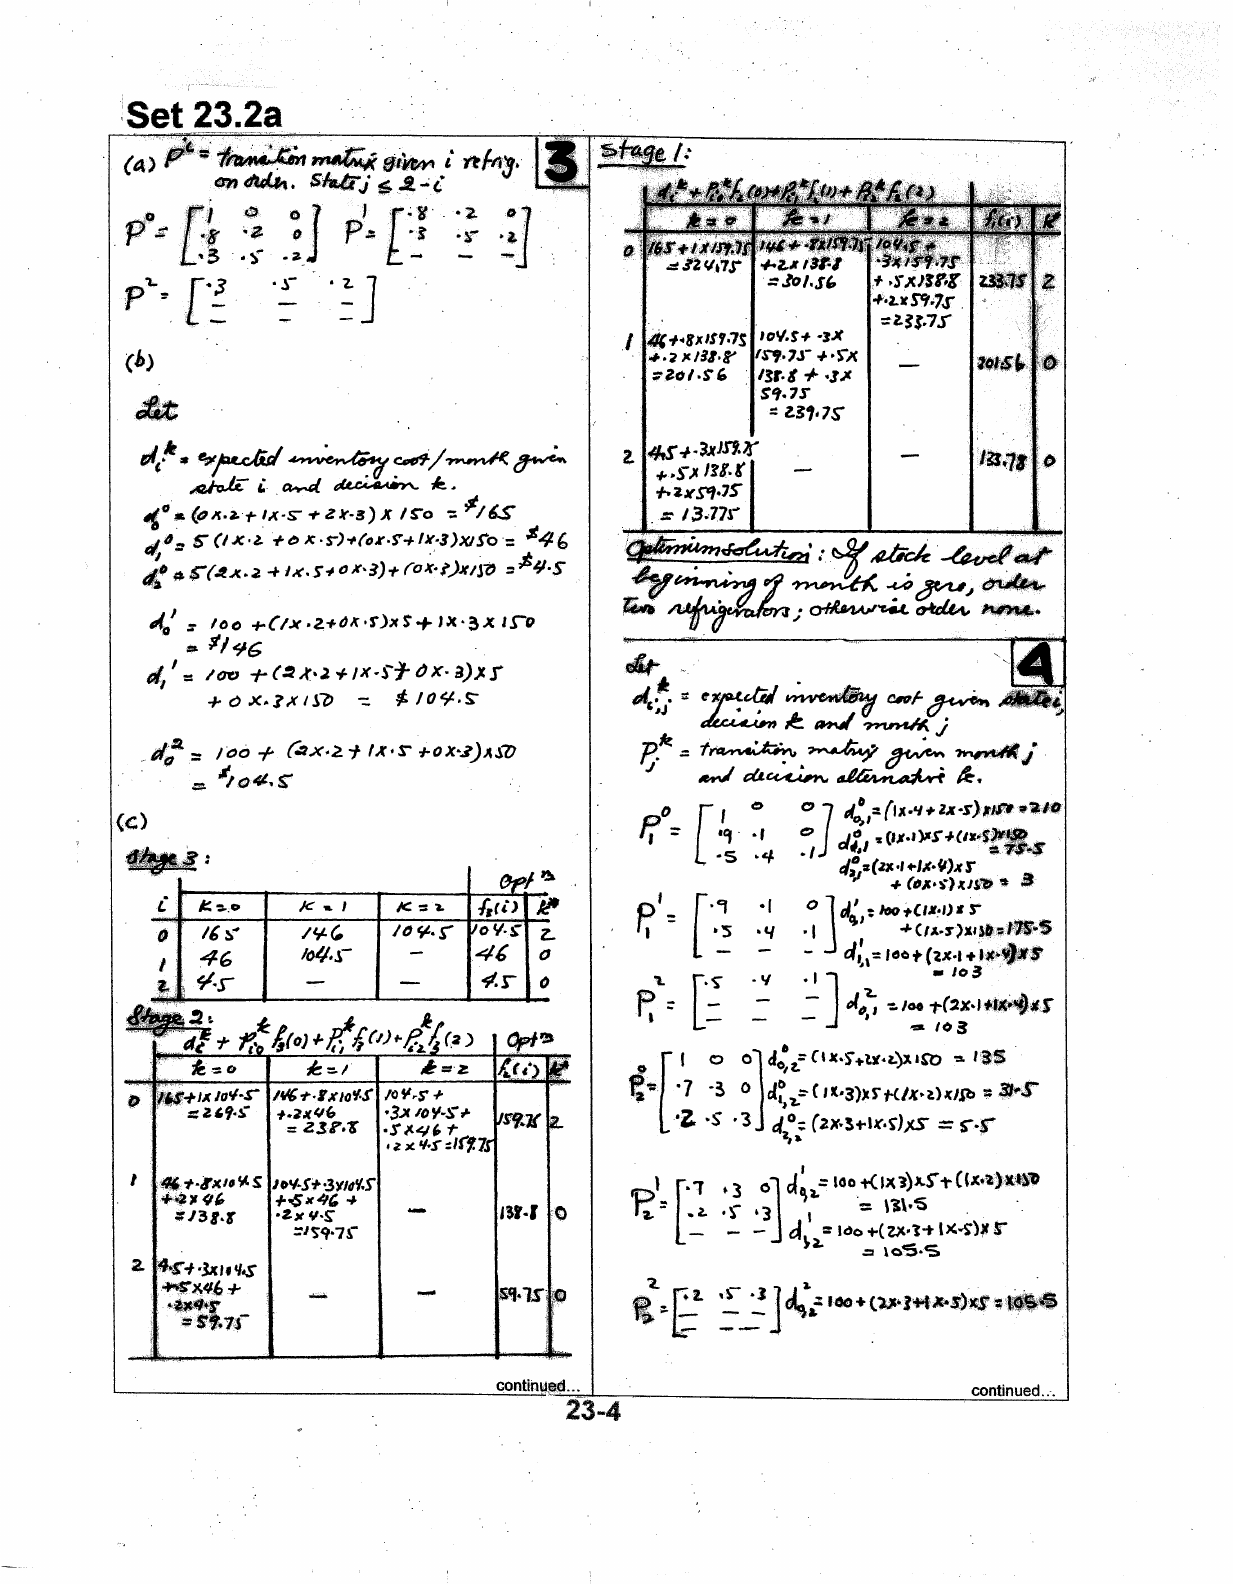 Set 23.2a
3
(a) P^i = transition matrix given i refrig.
on order. State j ≤ 2-i
P^0 = [1 0 0
.8 .2 0
.3 .5 .2]
P^1 = [.8 .2 0
.3 .5 .2
- - -]
P^2 = [.3 .5 .2
- - -
- - -]
(b)
Let
d_i^k = expected inventory cost/month given
state i and decision k.
d_0^0 = (0x.2 + 1x.5 + 2x.3) x 150 = $165
d_1^0 = 5(1x.2 + 0x.5)+(0x.5+1x.3)x150 = $46
d_2^0 = 5(2x.2 + 1x.5+0x.3)+(0x.3)x150 = $4.5
d_0^1 = 100 +(1x.2+0x.5)x5 + 1x.3 x 150
= $146
d_1^1 = 100 + (2x.2 + 1x.5 + 0x.3)x5
+ 0x.3x150 = $104.5
d_0^2 = 100 + (2x.2 + 1x.5 + 0x.3)x50
= $104.5
(c)
Stage 3:
Opt^n
i K=0 K=1 K=2 f3(i) k*
0 165 146 104.5 104.5 2
1 46 104.5 - 46 0
2 4.5 - - 4.5 0
Stage 2:
d_i^k + P_i0^k f3(0) + P_i1^k f3(1) + P_i2^k f3(2) Opt^n
k=0 k=1 k=2 f2(i) k*
0 165+1x104.5 146+.8x104.5 104.5+
=269.5 +.2x46 .3x104.5+
=238.8 .5x46+ 159.75 2
.2x4.5=159.75
1 46+.8x104.5 104.5+.3x104.5
+.2x46 +.5x46+ -
=138.8 .2x4.5 138.8 0
=159.75
2 4.5+.3x104.5
+.5x46+ - - 59.75 0
.2x4.5
=59.75
continued...
Stage 1:
d_i^k + P_i0^k f2(0)+P_i1^k f2(1)+P_i2^k f2(2)
k=0 k=1 k=2 f1(i) k*
0 165+1x159.75 146+.8x159.75 104.5+
=324.75 +.2x138.8 .3x159.75
=301.56 +.5x138.8 233.75 2
+.2x59.75
=233.75
1 46+.8x159.75 104.5+.3x
+.2x138.8 159.75+.5x -
=201.56 138.8+.3x 201.56 0
59.75
=239.75
2 4.5+.3x159.75
+.5x138.8 - - 133.78 0
+.2x59.75
=13.775
Optimum Solution: If stock level at
beginning of month is zero, order
two refrigerators; otherwise order none.
4
Let
d_i,j^k = expected inventory cost given state i,
decision k and month j
P_j^k = transition matrix given month j
and decision alternative k.
P_1^0 = [1 0 0
.9 .1 0
.5 .4 .1]
d_0,1^0 = (1x.4+2x.5)x150 = 210
d_1,1^0 = (1x.1)x5+(1x.5)x150
= 75.5
d_2,1^0 = (2x.1+1x.4)x5
+ (0x.5)x150 = 3
P_1^1 = [.9 .1 0
.5 .4 .1
- - -]
d_0,1^1 = 100+(1x.1)x5
+(1x.5)x150 = 175.5
d_1,1^1 = 100+(2x.1+1x.4)x5
= 103
P_1^2 = [.5 .4 .1
- - -
- - -]
d_0,1^2 = 100+(2x.1+1x.4)x5
= 103
P_2^0 = [1 0 0
.7 .3 0
.2 .5 .3]
d_0,2^0 = (1x.5+2x.2)x150 = 135
d_1,2^0 = (1x.3)x5+(1x.2)x150 = 31.5
d_2,2^0 = (2x.3+1x.5)x5 = 5.5
P_2^1 = [.7 .3 0
.2 .5 .3
- - -]
d_0,2^1 = 100+(1x3)x.5+((x.2)x150
= 131.5
d_1,2^1 = 100+(2x.3+1x.5)x5
= 105.5
P_2^2 = [.2 .5 .3
- - -
- - -]
d_0,2^2 = 100+(2x.3+1x.5)x5 = 105.5
continued...
23-4